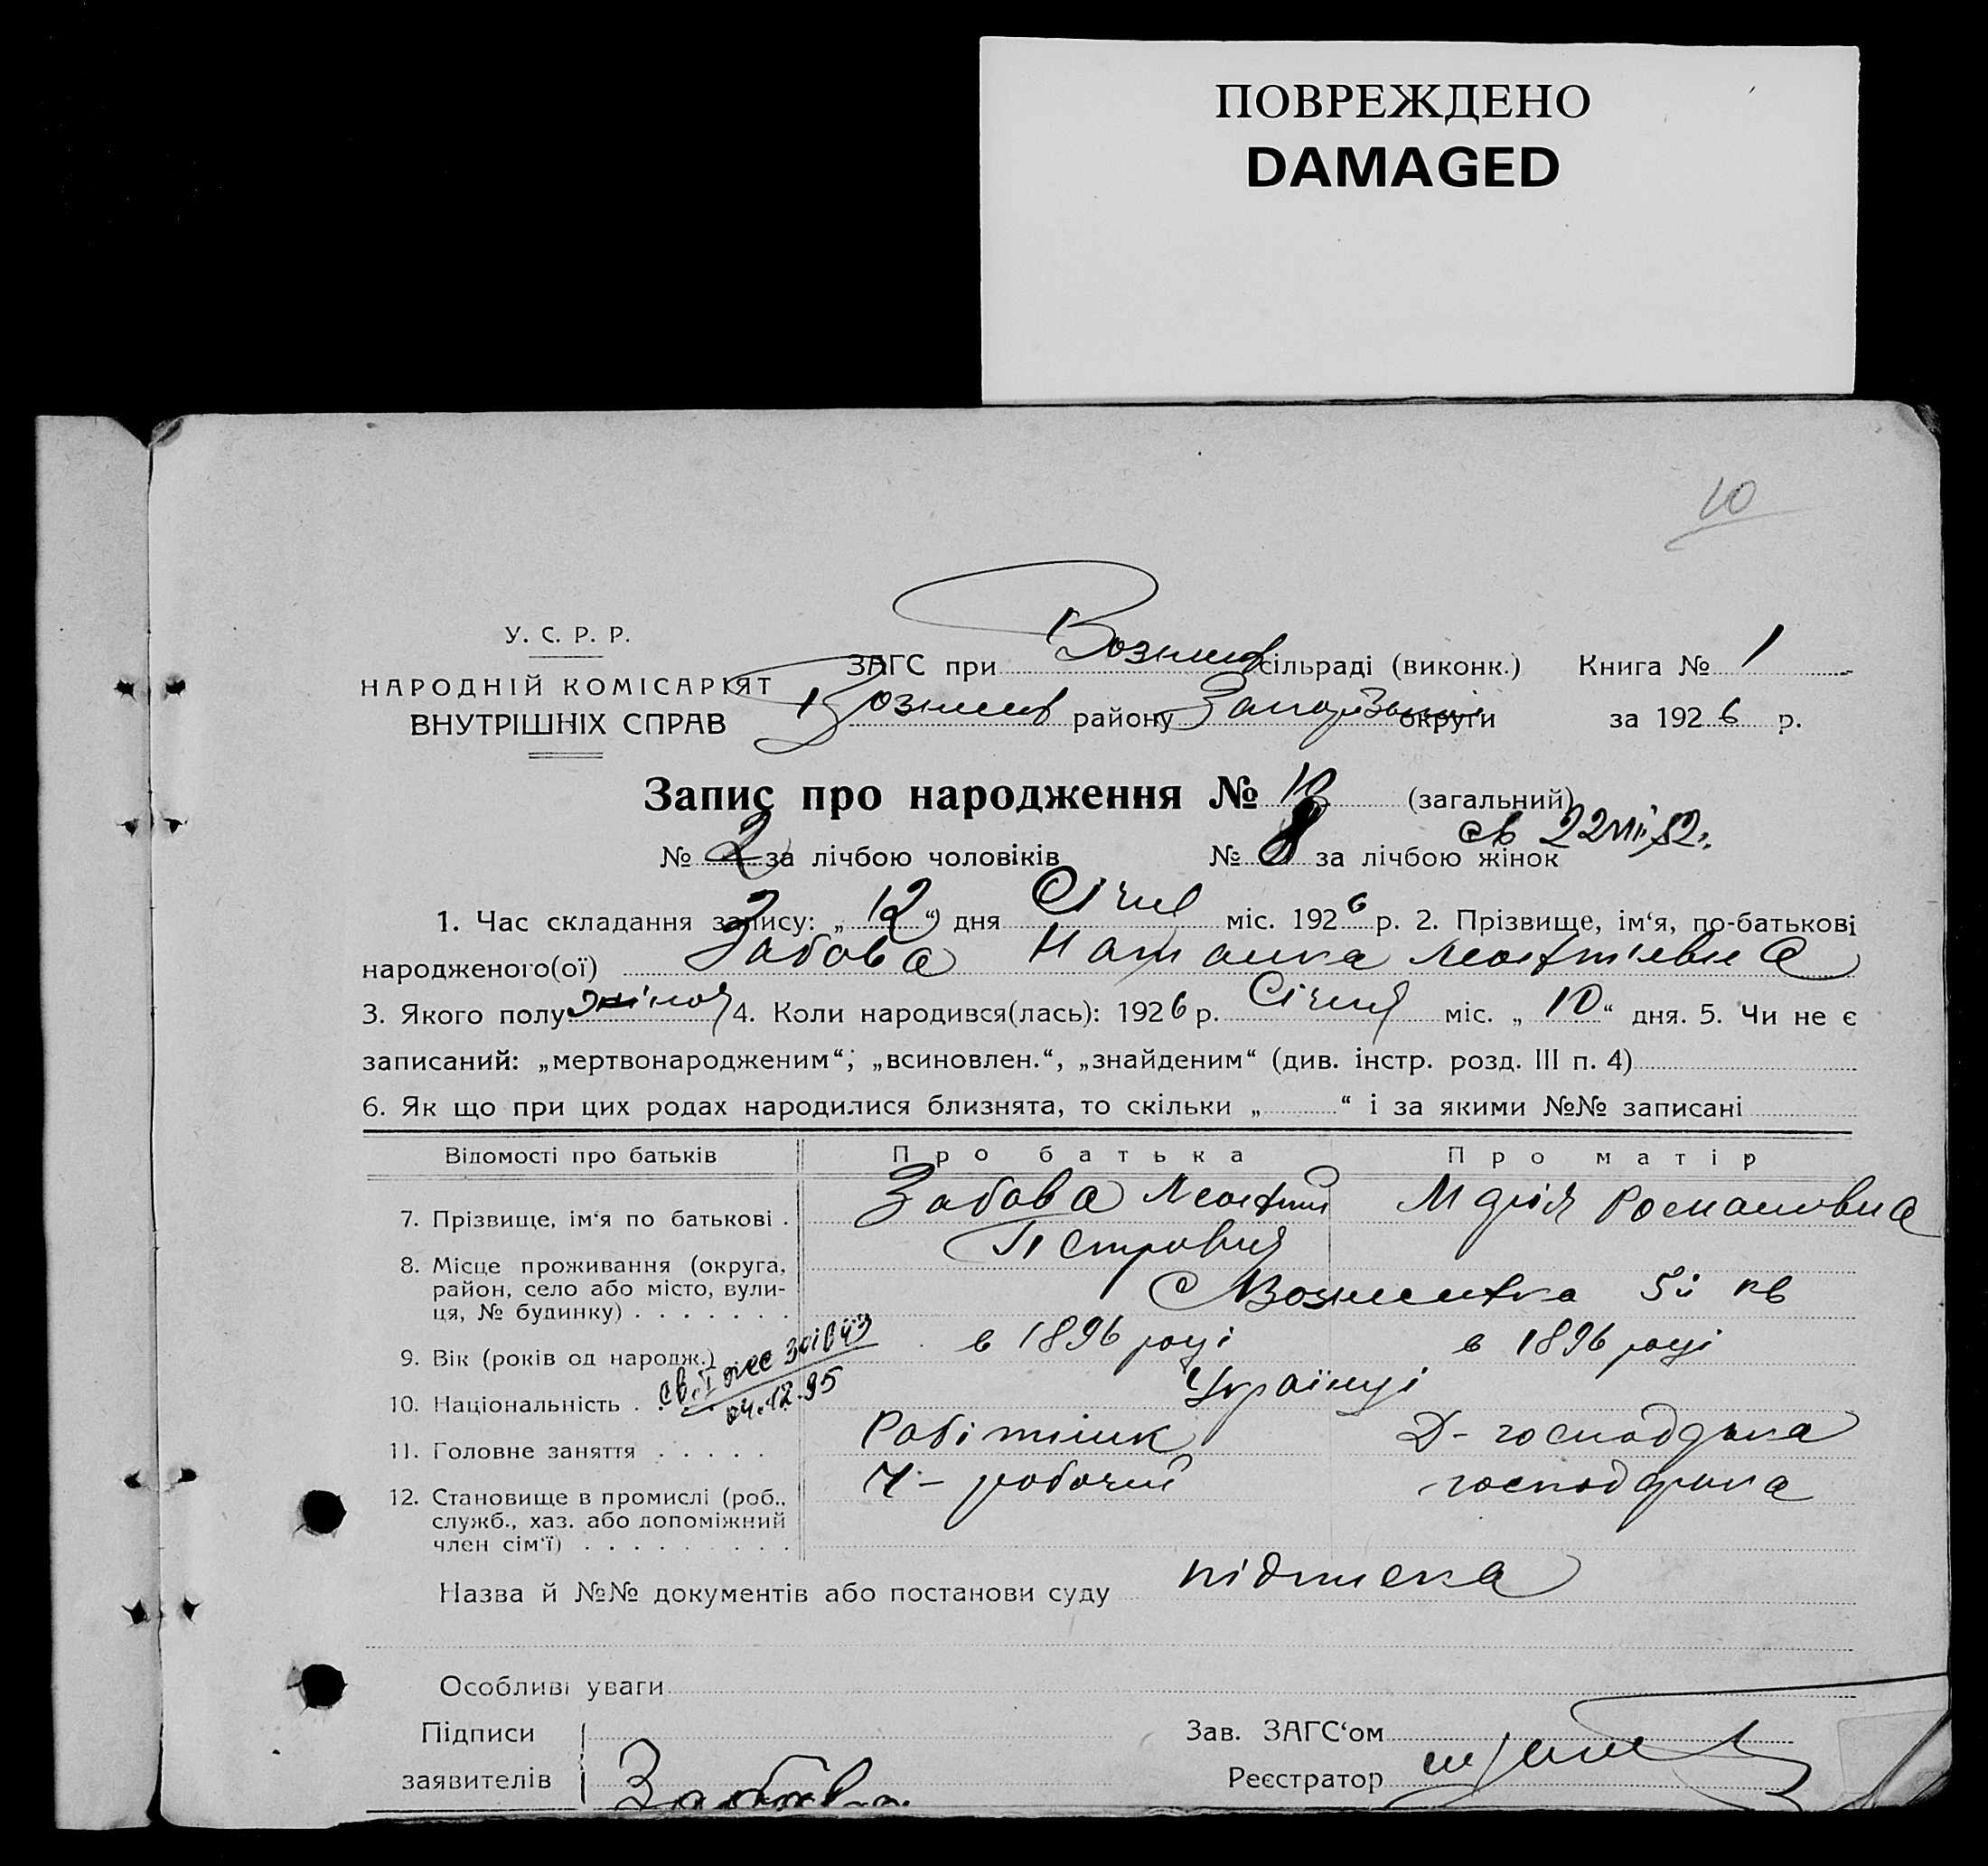 ПОВРЕЖДЕНО
DAMAGED
10
У. С. Р. Р.
НАРОДНІЙ КОМІСАРІЯТ
ВНУТРІШНІХ СПРАВ
ЗАГС при Вознесен сільраді (виконк.) Книга № 1
району округи за 1926 р.
Запис про народження № 10 (загальний)
№ 2 за лічбою чоловіків № 8 за лічбою жінок
1. Час складання запису: „12“ дня Січня міс. 1926 р. 2. Прізвище, ім‘я, по-батькові
народженого(ої) Забова Наталка Леонтіевна
3. Якого полу: жіноч 4. Коли народився(лась): 1926 р. Січня міс. „10“ дня. 5. Чи не є
записаний: „мертвонародженим“; „всиновлен.“, „знайденим“ (див. інстр. розд. III п. 4)
6. Як що при цих родах народилися близнята, то скільки „ “ і за якими №№ записані
Відомості про батьків Про батька Про матір
7. Прізвище, ім‘я по батькові . Забова Леонтий Марія Романовна
Петрович
8. Місце проживання (округа,
район, село або місто, вули-
ця, № будинку) . . . . . . . с Вознесенка 5й кв
9. Вік (років од народж.) в 1896 році в 1896 році
04.12.95
10. Національність . Українці
11. Головне заняття . . . . . Робітник Д-господарка
12. Становище в промислі (роб.,
служб., хаз. або допоміжний
член сім‘ї) . . . . . . . . . Ч-робочий господарка
Назва й №№ документів або постанови суду підписка
Особливі уваги
Підписи
заявителів Забова
Зав. ЗАГС‘ом
Реєстратор